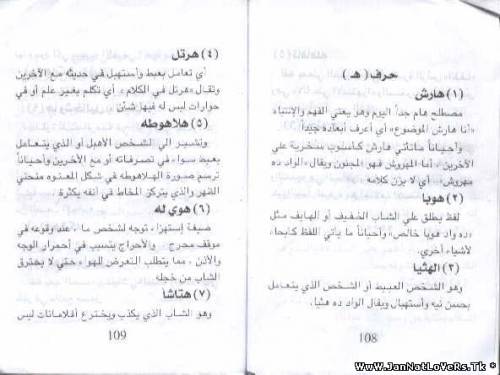 حرف ( هـ )
(١) هارش
مصطلح هام جداً اليوم وهو يعني الفهم والإنتباه
«أنا هارش الموضوع» أي أعرف أبعاده جيداً
وأحياناً ماتأتي هارش كأسلوب سخرية علي
الآخرين ، أما المهروش فهو المجنون ويقال «الواد ده
مهروش» أي لا يزن كلامه .
(٢) هوبا
لفظ يطلق علي الشاب الخفيف أو الهايف مثل
«ده واد هوبا خالص» وأحياناً ما يأتي اللفظ كإيحاء
لأشياء أخري.
(٣) الهثيا
وهو الشخص العبيط أو الشخص الذي يتعامل
بحسن نيه وأستهبال ويقال الواد ده هثيا.
108
(٤) هرتل
أي تعامل بعبط وأستهبل في حديثه مع الآخرين
وتقال «هرتل في الكلام» أي تكلم بغير علم أو في
حوارات ليس له فيها شأن
(٥) هلاهوطه
وتشير الي الشخص الأهبل أو الذي يتعامل
بعبط سواء في تصرفاته أو مع الآخرين وأحياناً
ترسم صورة الهلاهوطه في شكل المعتوه منحني
الظهر والذي يتركز المخاط في أنفه بكثرة .
(٦) هوي له
صيغة إستهزاء توجه لشخص ما، عند وقوعه في
موقف محرج والأحراج يتسبب في أحمرار الوجه
والأذن، مما يتطلب التعرض للهواء حتي لا يحترق
الشاب من خجله
(٧) هتاشا
وهو الشاب الذي يكذب ويخترع أفلامانات ليس
109
WwW.JanNatLoVeRs.Tk *